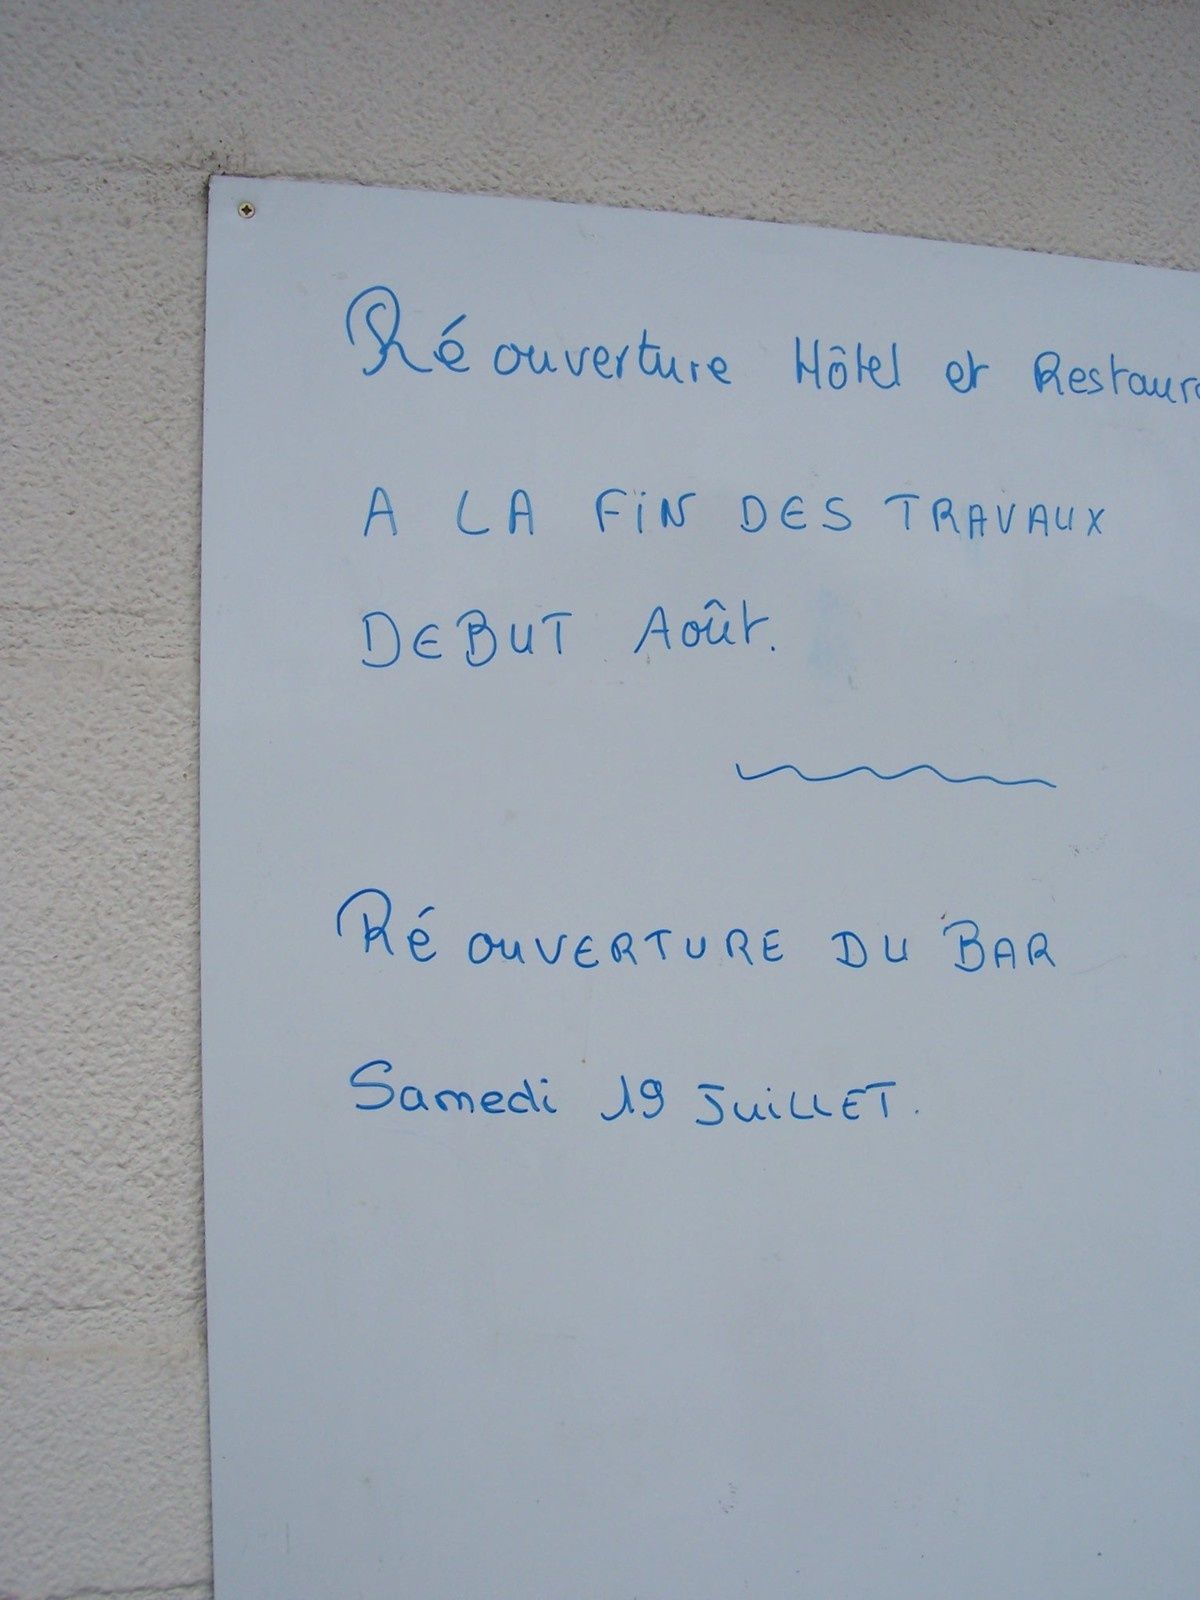 Réouverture Hôtel et Restaura
A LA FIN DES TRAVAUX
DEBUT Août.
Réouverture DU BAR
Samedi 19 JUILLET.